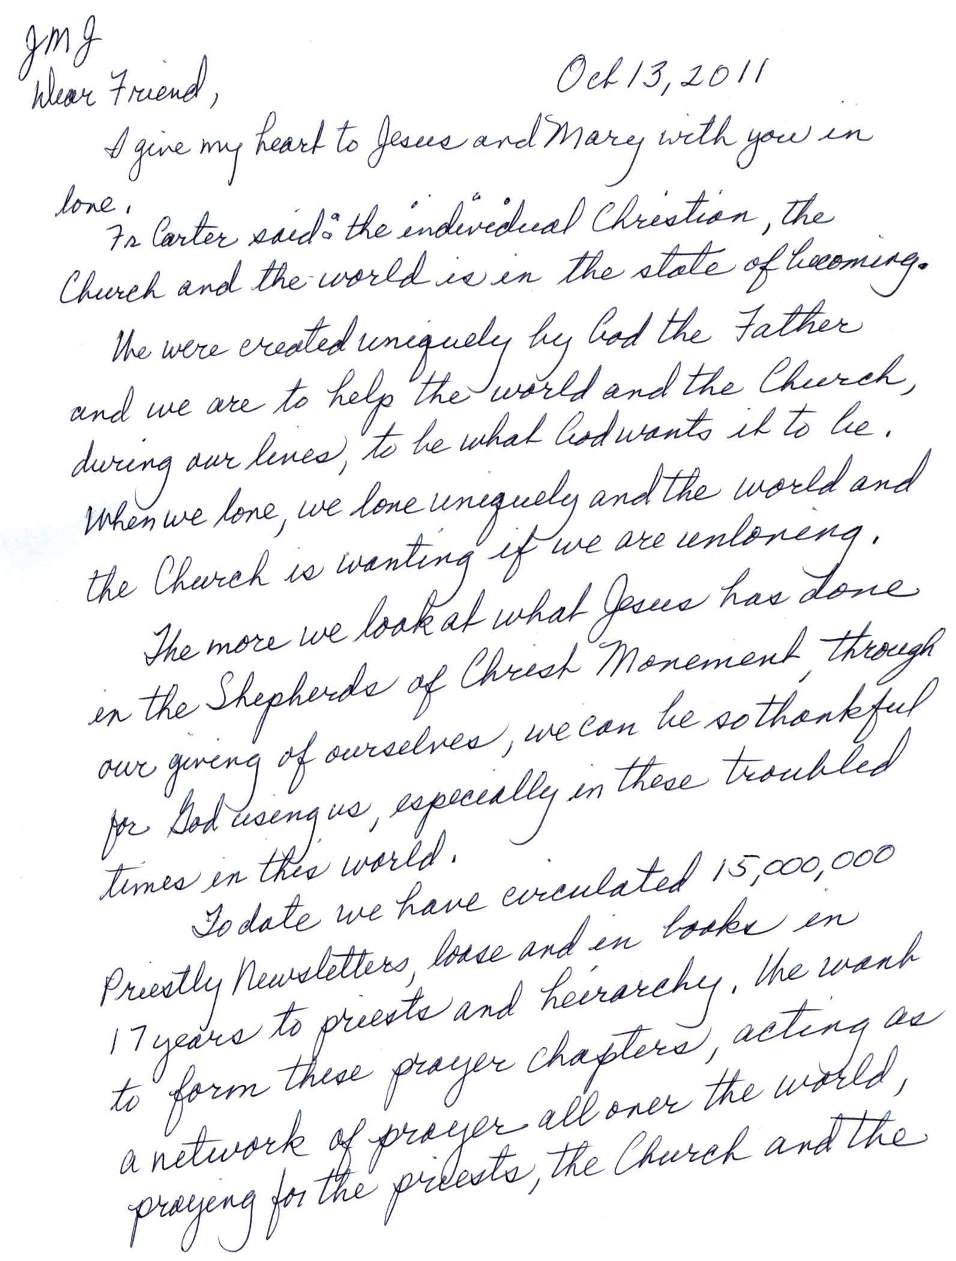 JMJ
Oct 13, 2011
Dear Friend,
I give my heart to Jesus and Mary with you in
love.
Fr Carter said: the individual Christian, the
Church and the world is in the state of becoming.
We were created uniquely by God the Father
and we are to help the world and the Church,
during our lives, to be what God wants it to be.
When we love, we love uniquely and the world and
the Church is wanting if we are unloving.
The more we look at what Jesus has done
in the Shepherds of Christ Movement, through
our giving of ourselves, we can be so thankful
for God using us, especially in these troubled
times in this world.
To date we have circulated 15,000,000
Priestly Newsletters, loose and in books in
17 years to priests and heirarchy. We want
to form these prayer chapters, acting as
a network of prayer all over the world,
praying for the priests, the Church and the